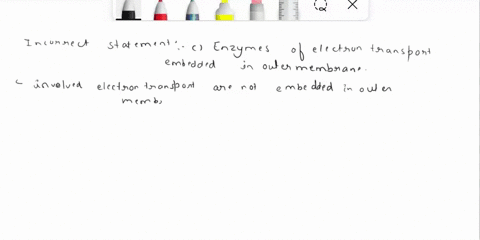 Incorrect statement :- c) Enzymes of electron transport
embedded in outer membrane.
involved electron transport are not embedded in outer
memb